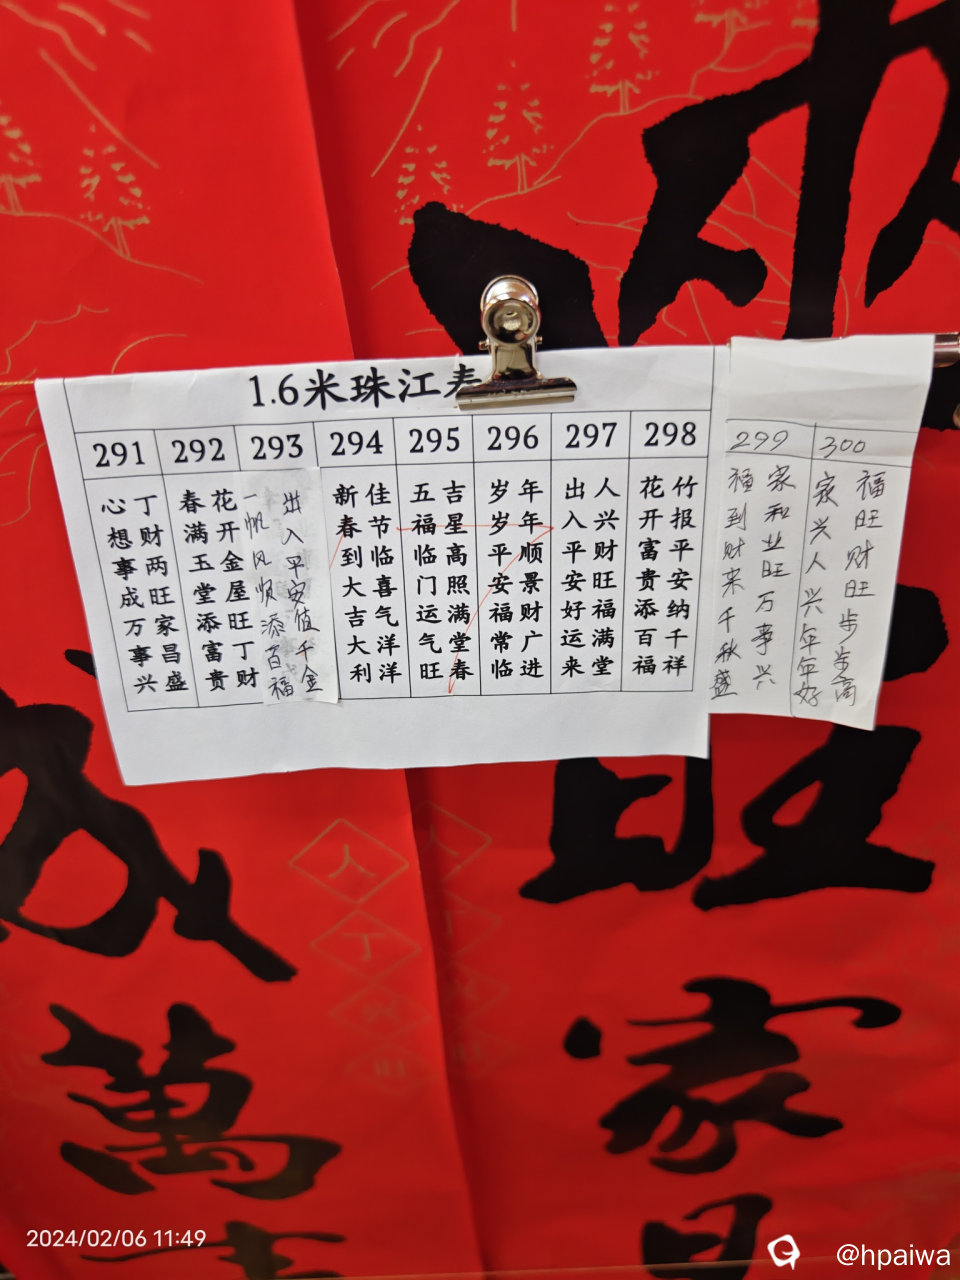 1.6米珠江寿
291
292
293
294
295
296
297
298
299
300
丁财两旺家昌盛
心想事成万事兴
花开金屋旺丁财
春满玉堂添富贵
出入平安值千金
一帆风顺添百福
佳节临喜气洋洋
新春到大吉大利
吉星高照满堂春
五福临门运气旺
年年顺景财广进
岁岁平安福常临
人兴财旺福满堂
出入平安好运来
竹报平安纳千祥
花开富贵添百福
家和业旺万事兴
福到财来千秋盛
福旺财旺步步高
家兴人兴年年好
旺家昌
成萬
人丁兴旺
2024/02/06 11:49
@hpaiwa